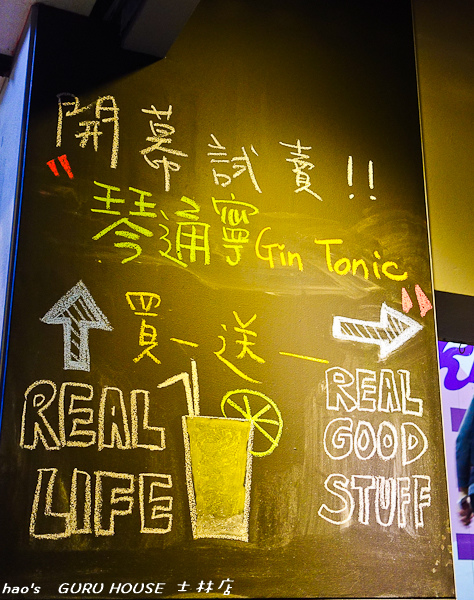 開幕試賣!!
"琴通寧Gin Tonic"
買一送一
REAL
LIFE
REAL
GOOD
STUFF
hao's GURU HOUSE 士林店